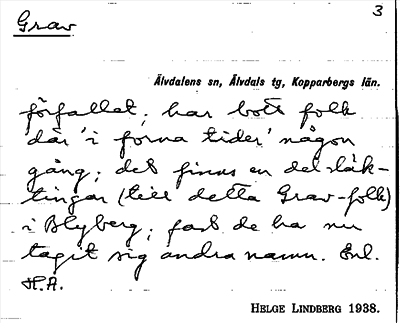 Grav
3
Älvdalens sn, Älvdals tg, Kopparbergs län.
förfallet; har bott folk
där 'i forna tider' någon
gång; det finns en del släk-
tingar (till detta Grav-folk)
i Blyberg; fast de ha nu
tagit sig andra namn. Enl.
H.A.
HELGE LINDBERG 1938.